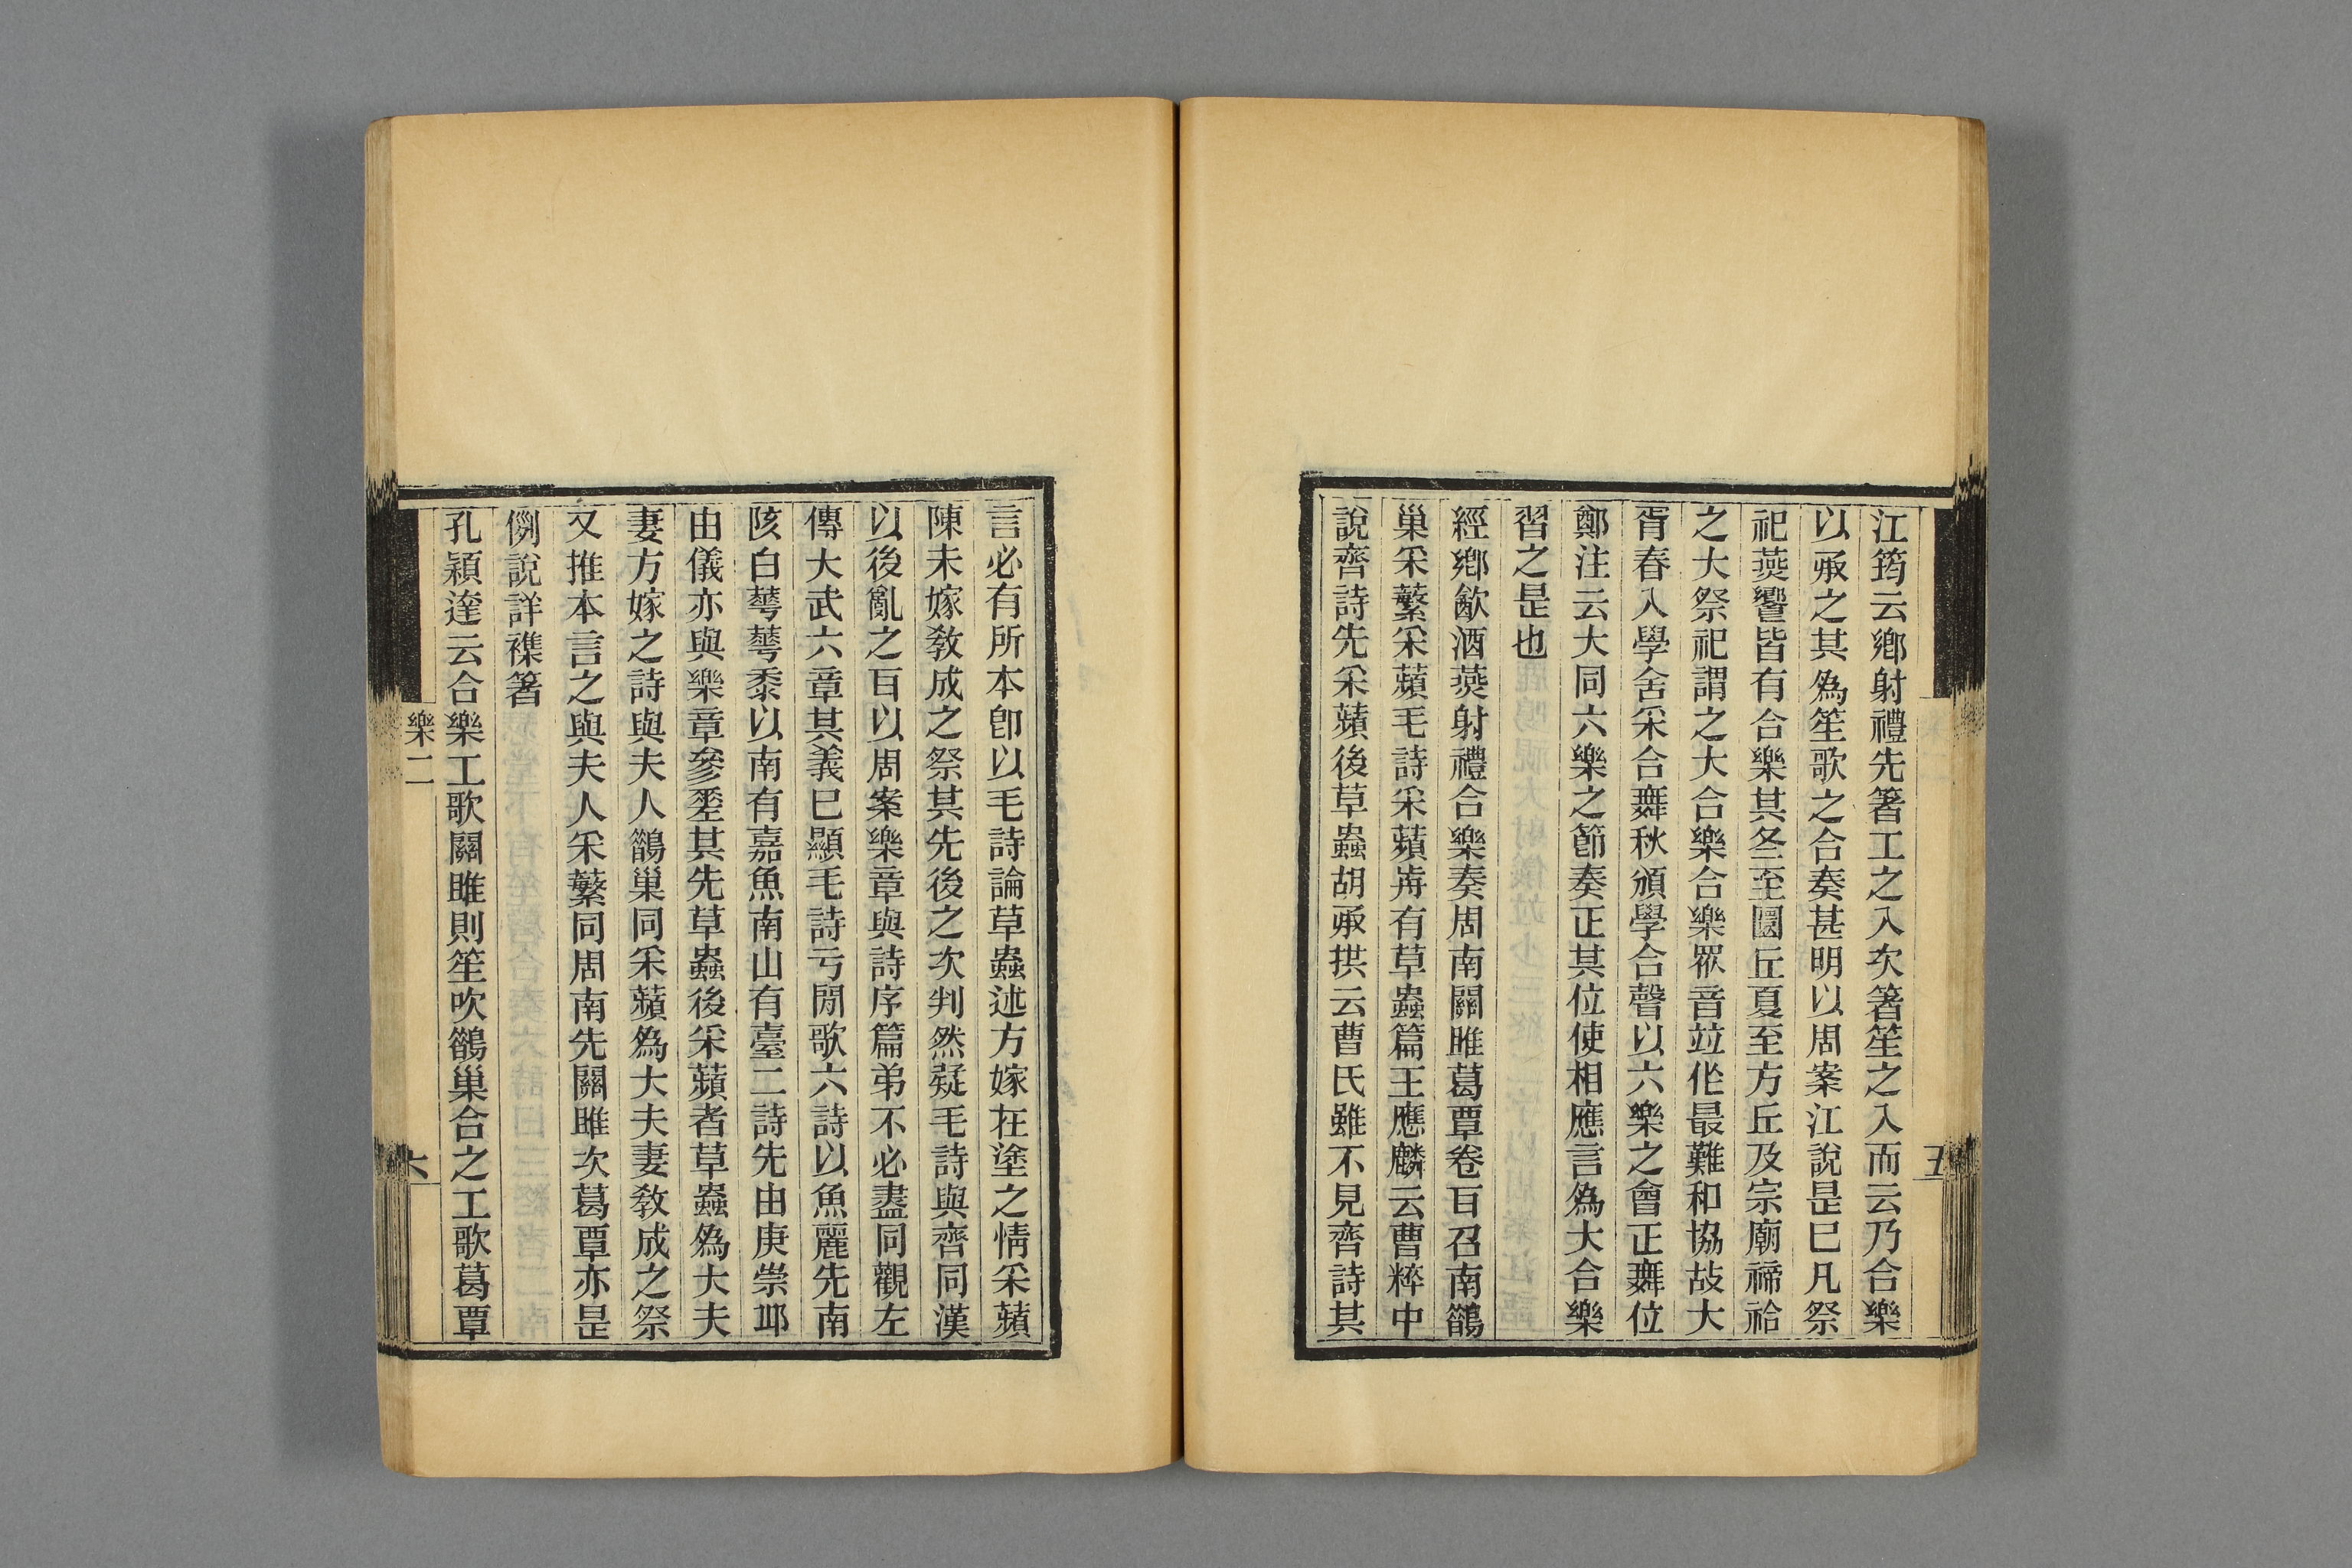 江筠云鄉射禮先箸工之入次箸笙之入而云乃合樂
以承之其爲笙歌之合奏甚明以周案江說是巳凡祭
祀燕響皆有合樂其冬至圜丘夏至方丘及宗廟禘祫
之大祭祀謂之大合樂合樂眾音竝作最難和協故大
胥春入學舍采合舞秋頒學合聲以六樂之會正舞位
鄭注云大同六樂之節奏正其位使相應言爲大合樂
習之是也
經鄉歙酒燕射禮合樂奏周南關雎葛覃卷耳召南鵲
巢采蘩采蘋毛詩采蘋歬有草蟲篇王應麟云曹粹中
說齊詩先采蘋後草蟲胡承珙云曹氏雖不見齊詩其
五
言必有所本卽以毛詩論草蟲述方嫁在塗之情采蘋
陳未嫁敎成之祭其先後之次判然疑毛詩與齊同漢
以後亂之百以周案樂章與詩序篇弟不必盡同觀左
傳大武六章其義巳顯毛詩亏閒歌六詩以魚麗先南
陔白華華黍以南有嘉魚南山有臺二詩先由庚崇邱
由儀亦與樂章參差其先草蟲後采蘋者草蟲爲大夫
妻方嫁之詩與夫人鵲巢同采蘋爲大夫妻敎成之祭
又推本言之與夫人采蘩同周南先關雎次葛覃亦是
例說詳襍箸
孔穎達云合樂工歌關雎則笙吹鵲巢合之工歌葛覃
樂二
六